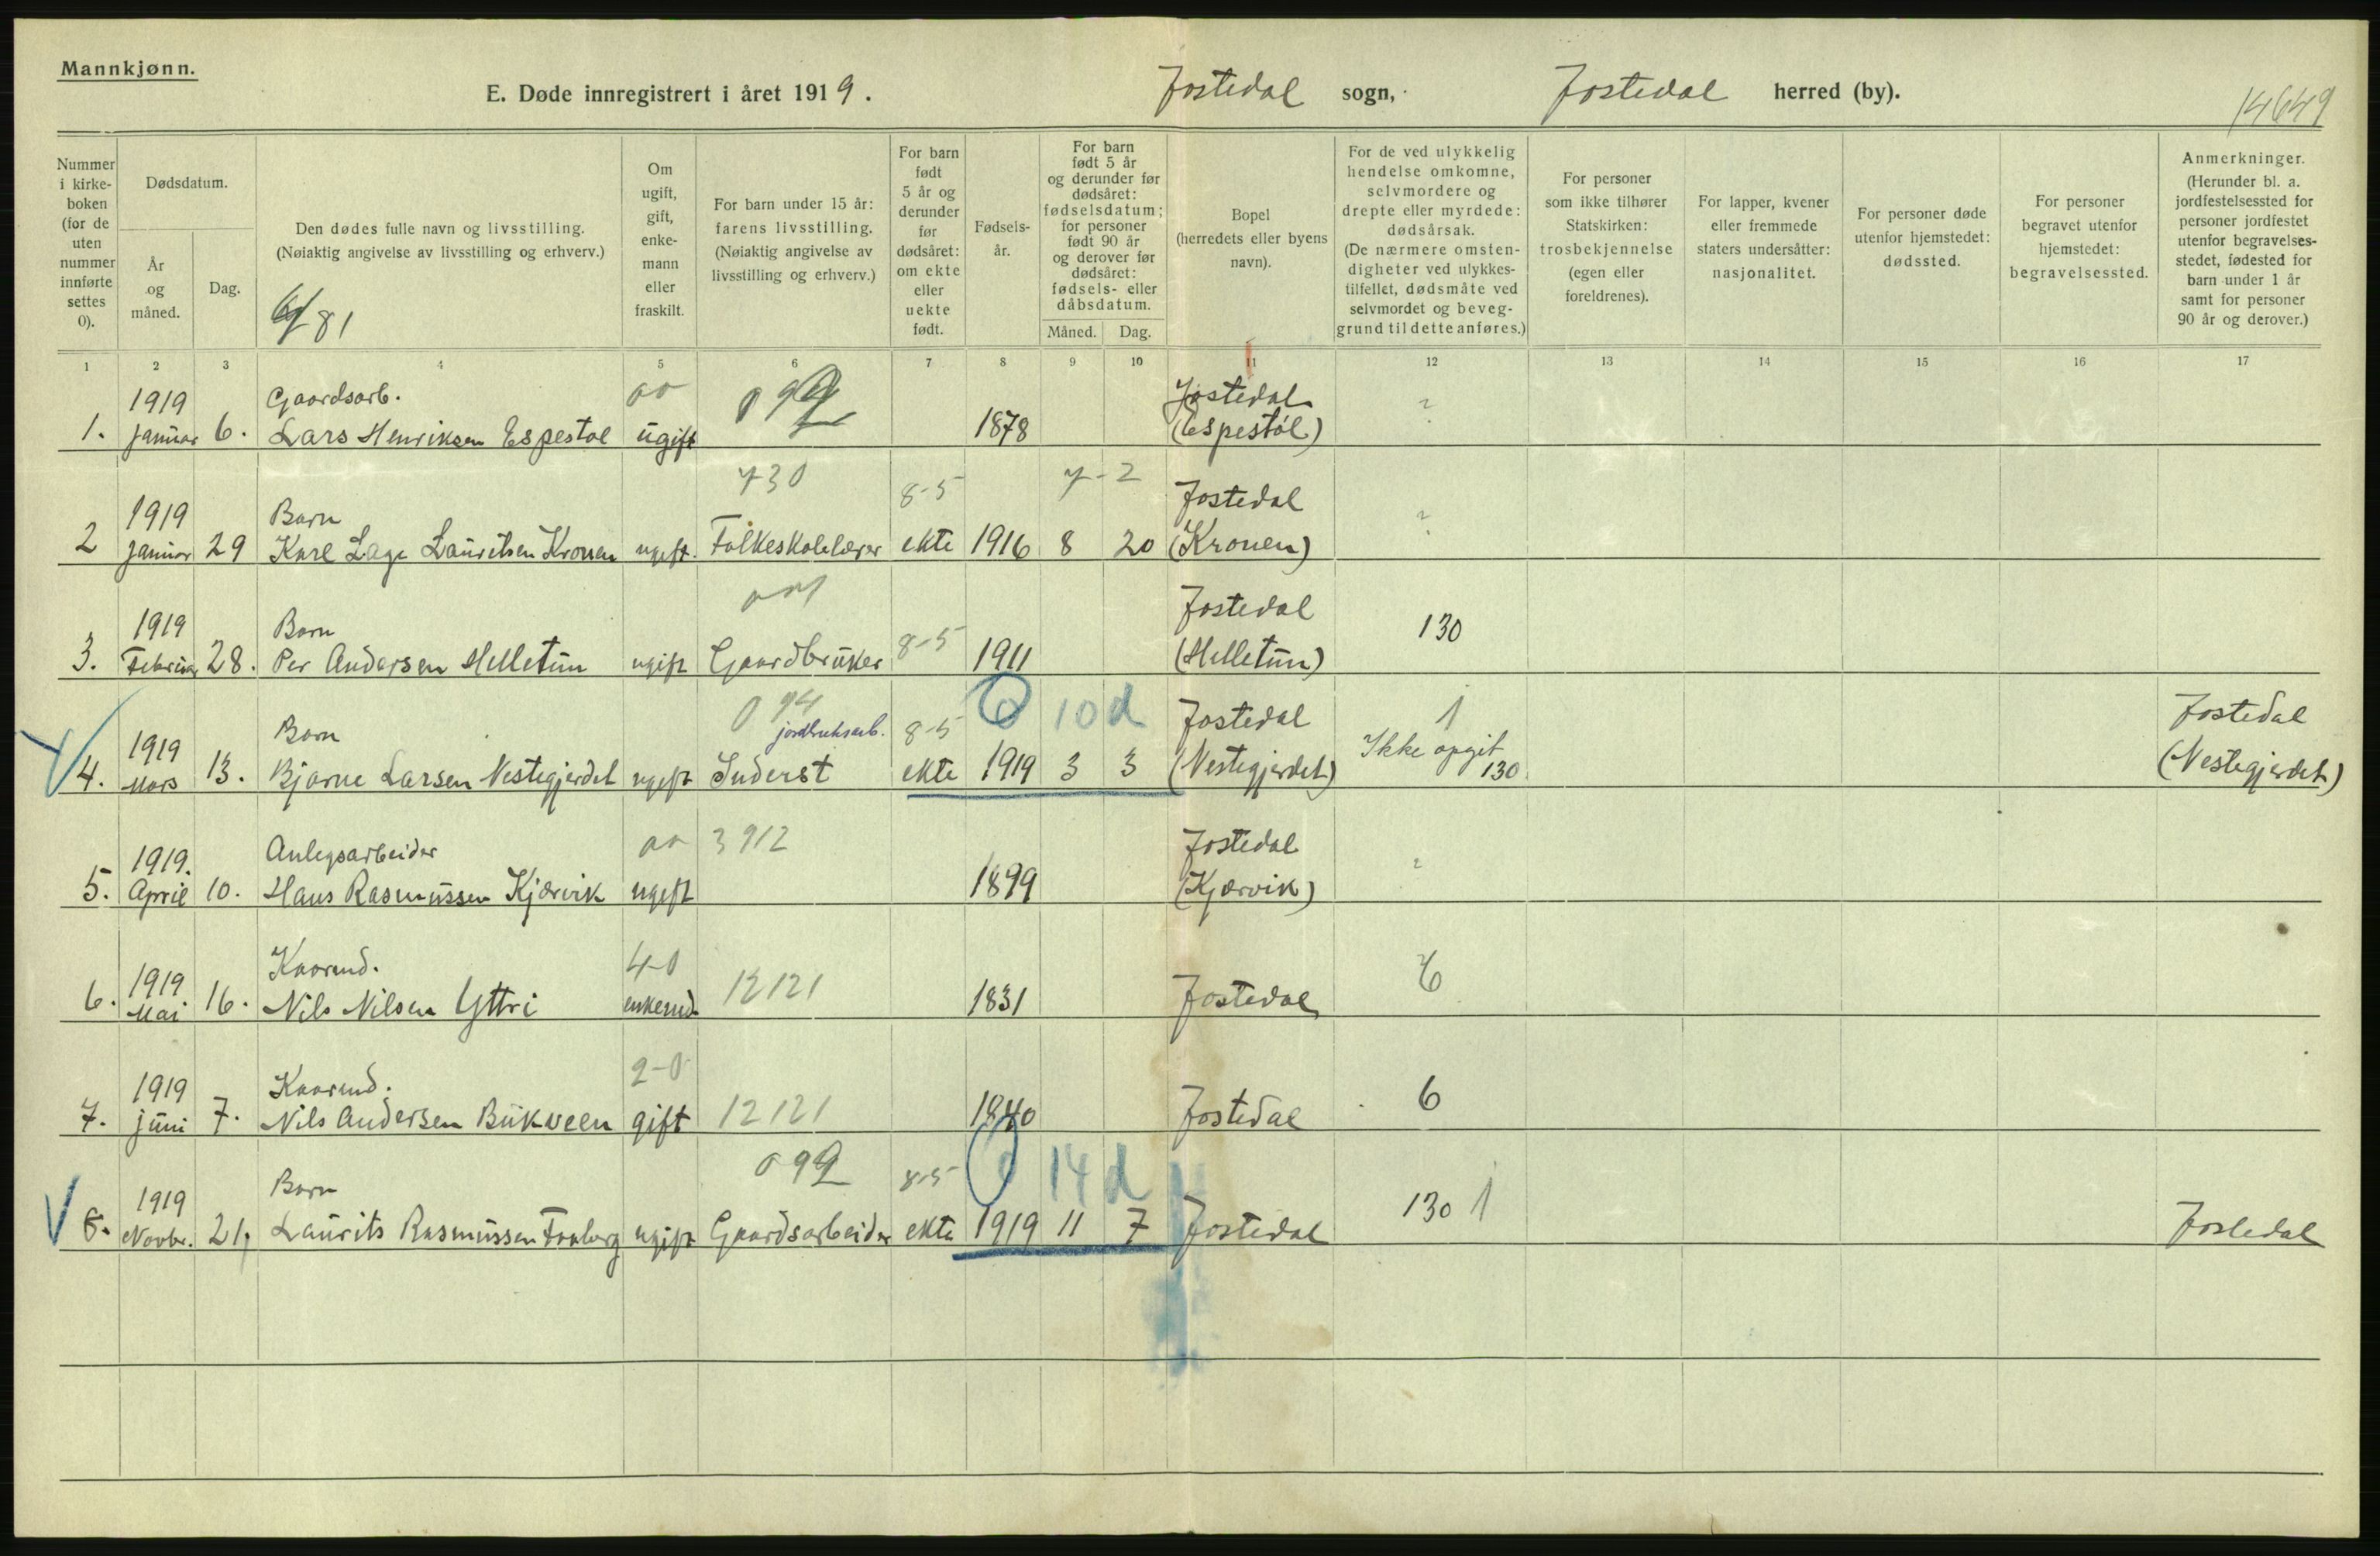 Mannkjønn.
E. Døde innregistrert i året 1919. Jostedal sogn, Jostedal herred (by).
14649
Nummer i kirke- boken (for de uten nummer innførte settes 0).
Dødsdatum.
År og måned.
Dag.
Den dødes fulle navn og livsstilling.
(Nøiaktig angivelse av livsstilling og erhverv.)
81
Om ugift, gift, enke- mann eller fraskilt.
For barn under 15 år: farens livsstilling. (Nøiaktig angivelse av livsstilling og erhverv.)
For barn født 5 år og derunder før dødsåret: om ekte eller uekte født.
Fødsels- år.
For barn født 5 år og derunder før dødsåret: fødselsdatum; for personer født 90 år og derover før dødsåret: fødsels- eller dåbsdatum.
Måned. Dag.
Bopel (herredets eller byens navn).
For de ved ulykkelig hendelse omkomne, selvmordere og drepte eller myrdede: dødsårsak. (De nærmere omsten- digheter ved ulykkes- tilfellet, dødsmåte ved selvmordet og beveg- grund til dette anføres.)
For personer som ikke tilhører Statskirken: trosbekjennelse (egen eller foreldrenes).
For lapper, kvener eller fremmede staters undersåtter: nasjonalitet.
For personer døde utenfor hjemstedet: dødssted.
For personer begravet utenfor hjemstedet: begravelsessted.
Anmerkninger. (Herunder bl. a. jordfestelsessted for personer jordfestet utenfor begravelses- stedet, fødested for barn under 1 år samt for personer 90 år og derover.)
1 2 3 4 5 6 7 8 9 10 11 12 13 14 15 16 17
1919 Gaardsarb. Jostedal ?
1. januar 6. Lars Henriksen Espestøl ugift 1878 (Espestøl)
730 8-5 7-2
1919 Barn Jostedal ?
2 januar 29 Karl Lage Lauritsen Kronen ugift. Folkeskolelærer ekte 1916 8 20 (Kronen)
1919 Barn 8-5 Jostedal 130
3. Februar 28. Per Andersen Helletun ugift Gaardbruker 1911 (Helletun)
094 jordbruksarb. 8-5 0 10 d Jostedal 1 Jostedal
1919 Barn Ikke opgit
4. Mars 13. Bjarne Larsen Nestegjerdet ugift Inderst ekte 1919 3 3 (Nestegjerdet) 130 (Nestegjerdet)
1919. Anlegsarbeider 3912 Jostedal ?
5. April 10. Hans Rasmussen Kjærvik ugift 1899 (Kjærvik)
1919 Kaarmd. 4-0
6. Mai 16. Nils Nilsen Yttri enkemd 12121 1831 Jostedal 6
1919 Kaarmd. 2-0
7. juni 7. Nils Andersen Bukveen gift 12121 1840 Jostedal 6
092 8-5 0 14 d
1919 Barn 130 1
8. Novbr. 21, Laurits Rasmussen Faaberg ugift Gaardsarbeider ekte 1919 11 7 Jostedal Jostedal